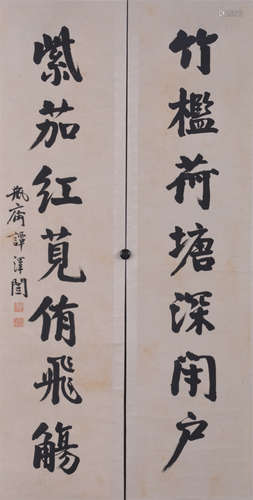 竹檻荷塘深閉户
紫茄紅莧侑飛觴
瓶齋譚澤闓